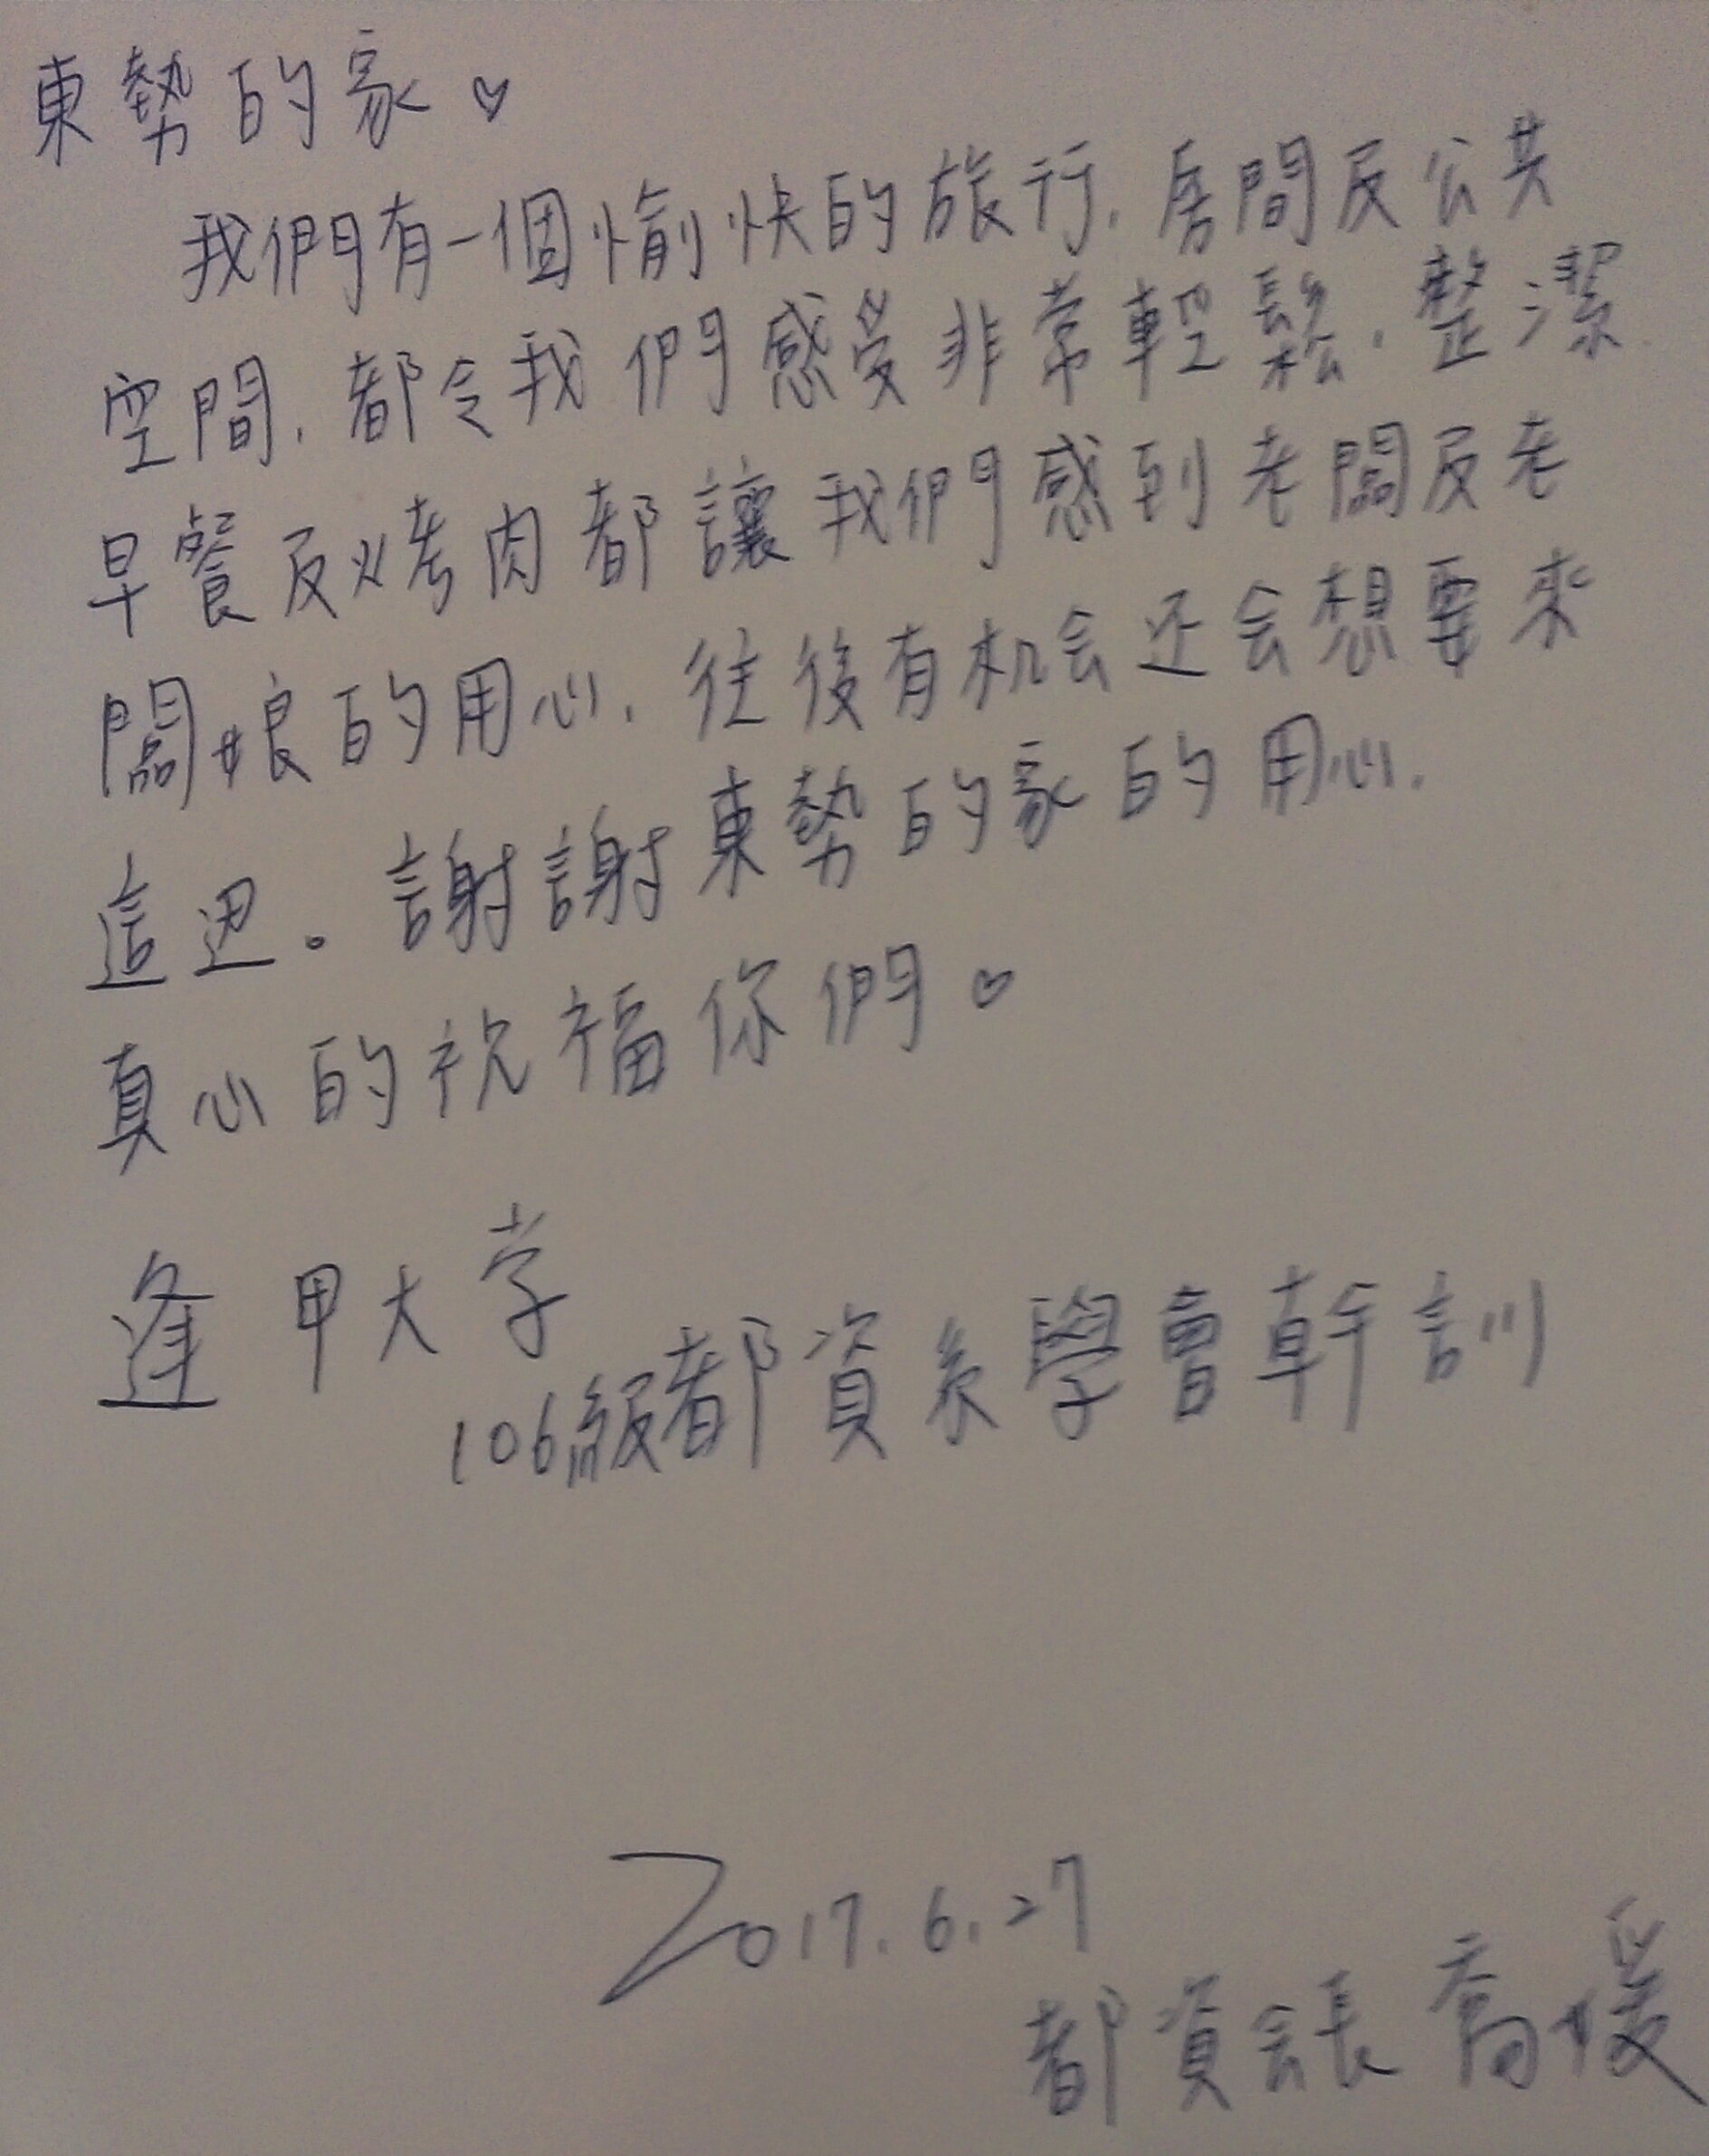 東勢的家。♡
我們有一個愉快的旅行,房間及公共
空間,都令我們感受非常輕鬆,整潔
早餐及烤肉都讓我們感到老闆及老
闆娘的用心,往後有机会还会想要來
這边。謝謝東勢的家的用心.
真心的祝福你們。♡
逢甲大学
106級都資系學會幹訓
2017.6.27
都資会長 喬媛